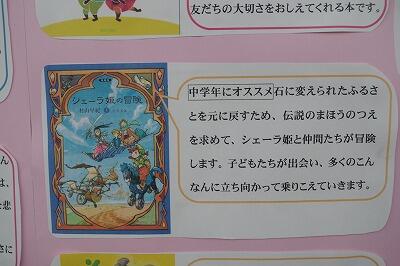 友だちの大切さをおしえてくれる本です。
シェーラ姫の冒険
村山早紀
中学年にオススメ石に変えられたふるさ
とを元に戻すため、伝説のまほうのつえ
を求めて、シェーラ姫と仲間たちが冒険
します。子どもたちが出会い、多くのこん
なんに立ち向かって乗りこえていきます。
ん
は、
な悲
さに